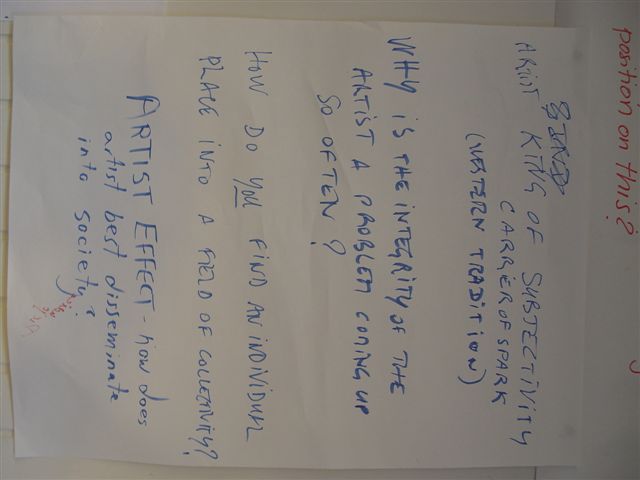 position on this?
ARTIST KING OF SUBJECTIVITY
CARRIER OF SPARK
(WESTERN TRADITION)
WHY IS THE INTEGRITY OF THE
ARTIST A PROBLEM COMING UP
SO OFTEN?
HOW DO YOU FIND AN INDIVIDUAL
PLACE INTO A FIELD OF COLLECTIVITY?
ARTIST EFFECT - how does
artist best disseminate
into society?